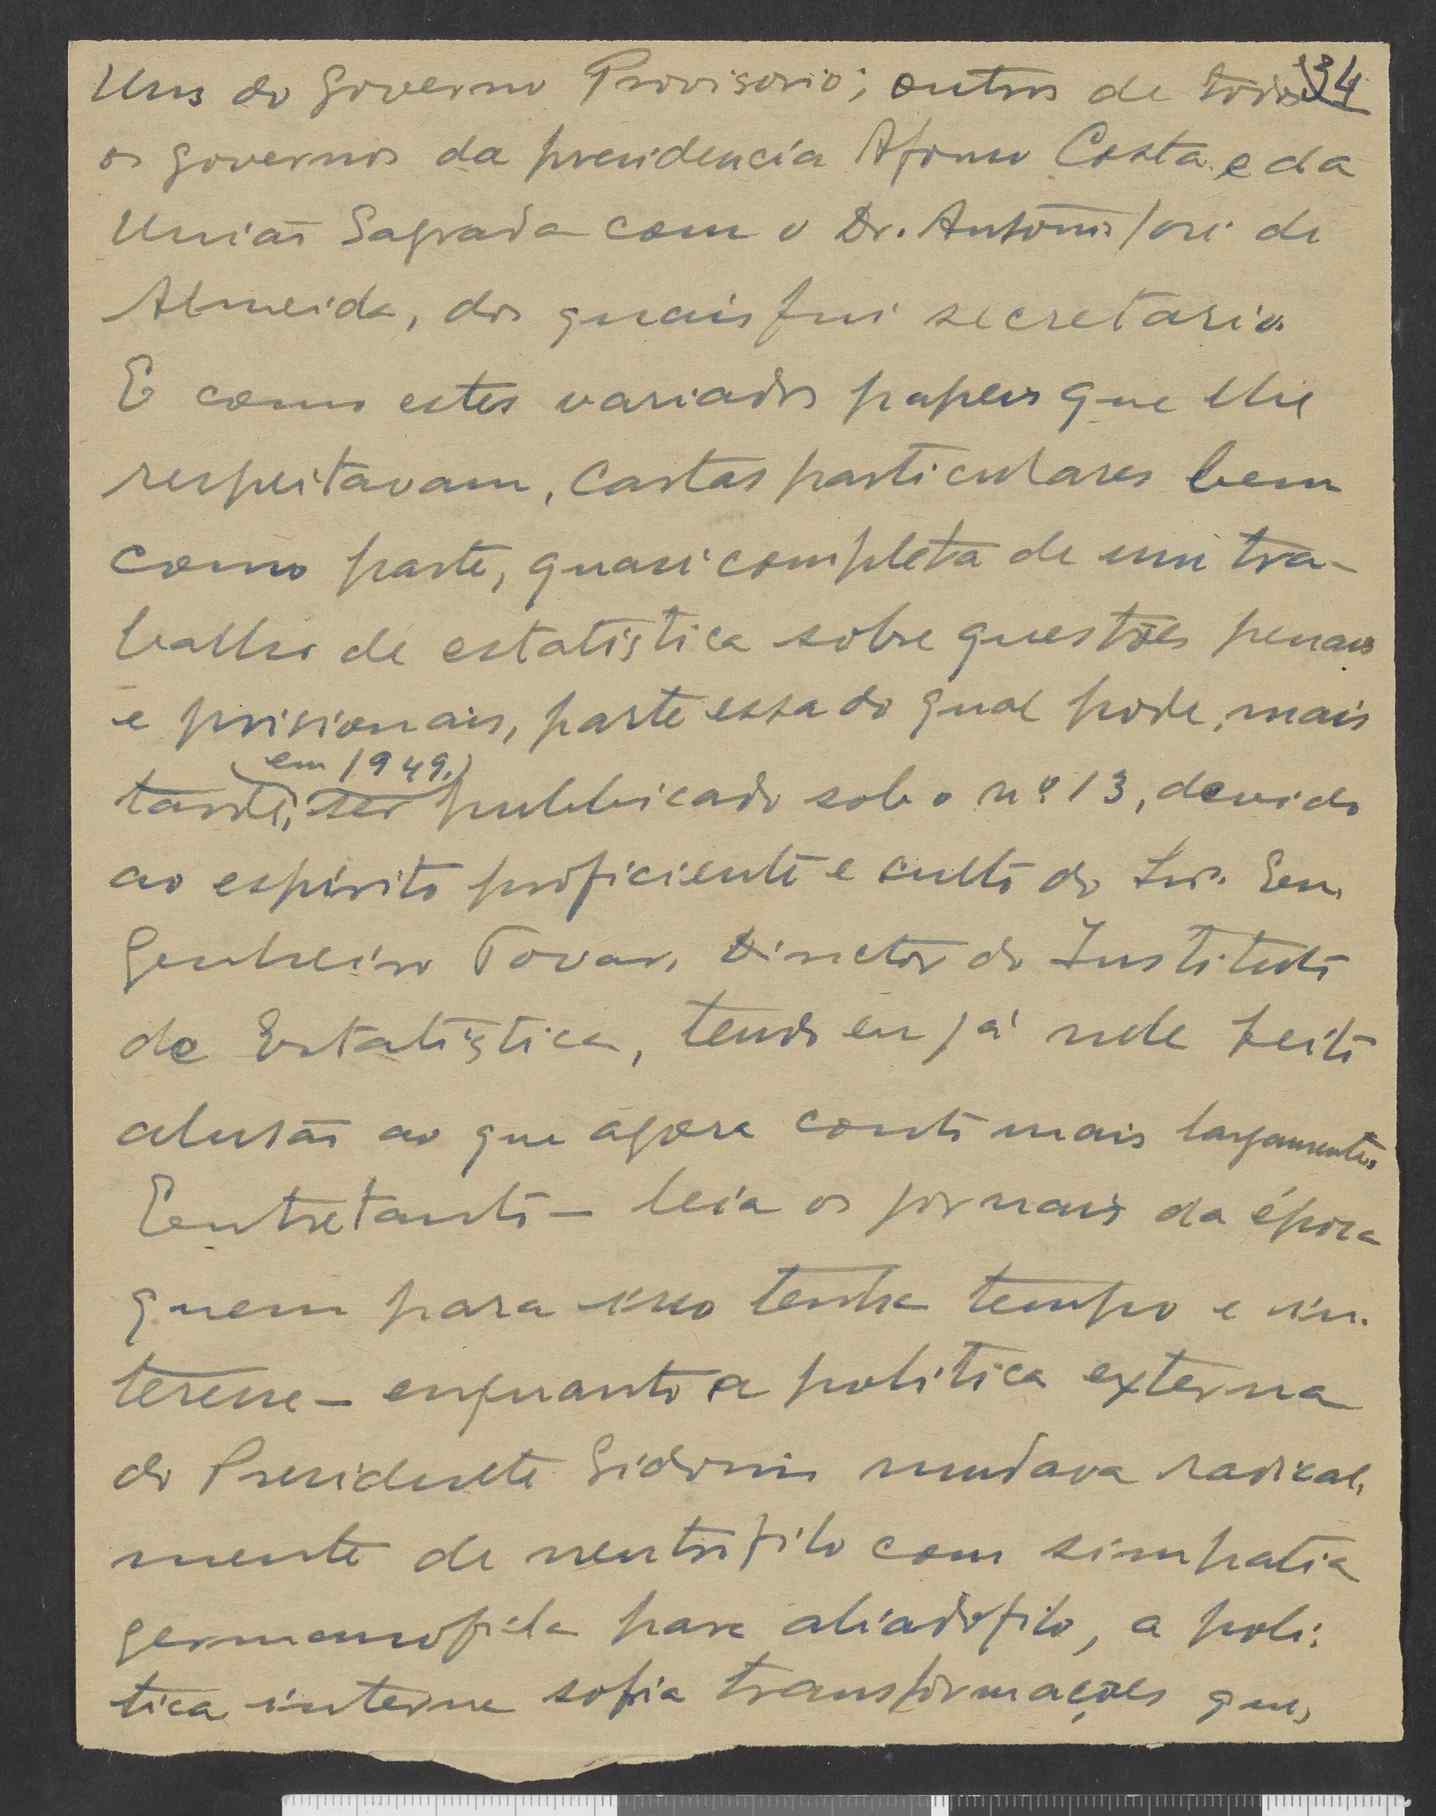 34
Uns do Governo Provisorio; outros de todos
os governos da presidencia Afonso Costa e da
União Sagrada com o Dr. António José de
Almeida, dos quais fui secretario.
E como estes variados papeis que lhe
respeitavam, cartas particulares bem
como parte, quasi completa de um tra-
balho de estatistica sobre questões penais
e prisionais, parte essa do qual pode, mais
(em 1949.)
tarde, ser publicado sob o nº 13, devido
ao espirito proficiente e culto do Snr. En-
genheiro Tovar, Director do Instituto
de Estatistica, tendo eu já nele feito
alusão ao que agora conto mais largamente.
Entretanto - leia os jornais da época
quem para isso tenha tempo e in-
teresse - enquanto a politica externa
do Presidente Sidonio mudava radical-
mente de neutrofilo com simpatia
germanofila para aliadofilo, a poli-
tica interna sofria transformações que,